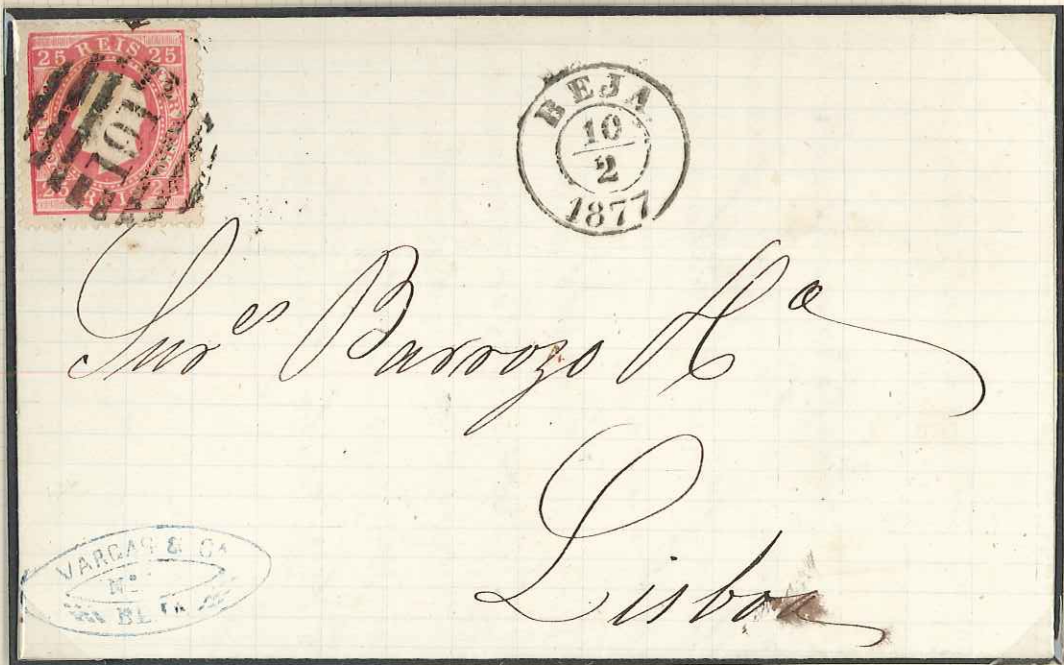 25 REIS 25
101
BEJA
10
2
1877
Snr.es Barrozo & C.a
Lisboa
VARGAS & Ca
No
BEJA